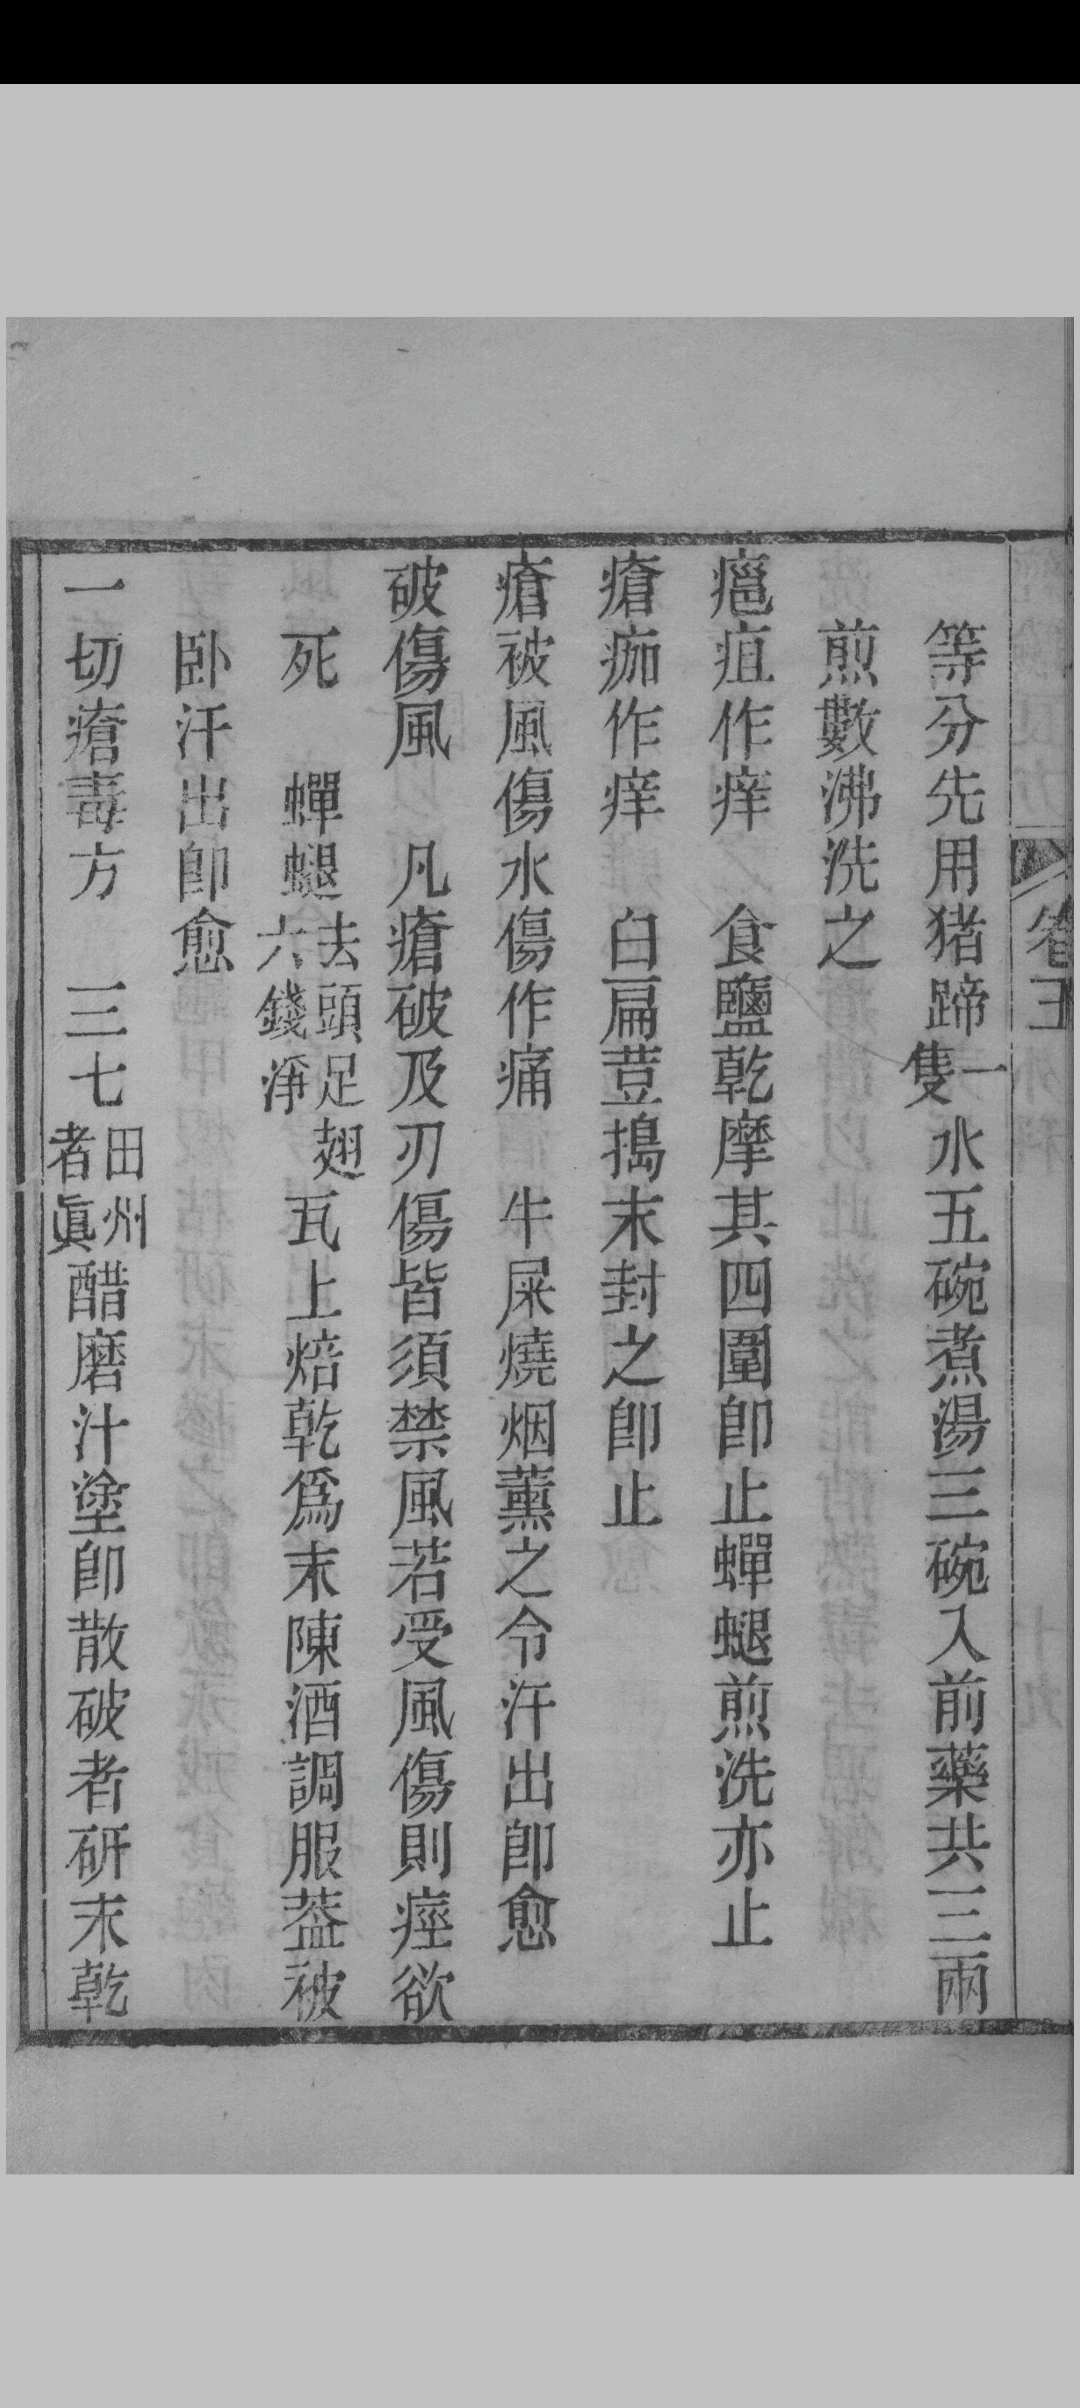 卷五
等分先用猪蹄一隻水五碗煮湯三碗入前藥共三兩
煎數沸洗之
瘢疽作痒　食鹽乾摩其四圍卽止蟬蜕煎洗亦止
瘡痂作痒　白扁荳搗末封之卽止
瘡被風傷水傷作痛　牛屎燒烟薰之令汗出卽愈
破傷風　凡瘡破及刃傷皆須禁風若受風傷則痙欲
死　蟬蜕去頭足翅六錢淨瓦上焙乾爲末陳酒調服葢被
卧汗出卽愈
一切瘡毒方　三七田州者眞醋磨汁塗卽散破者研末乾